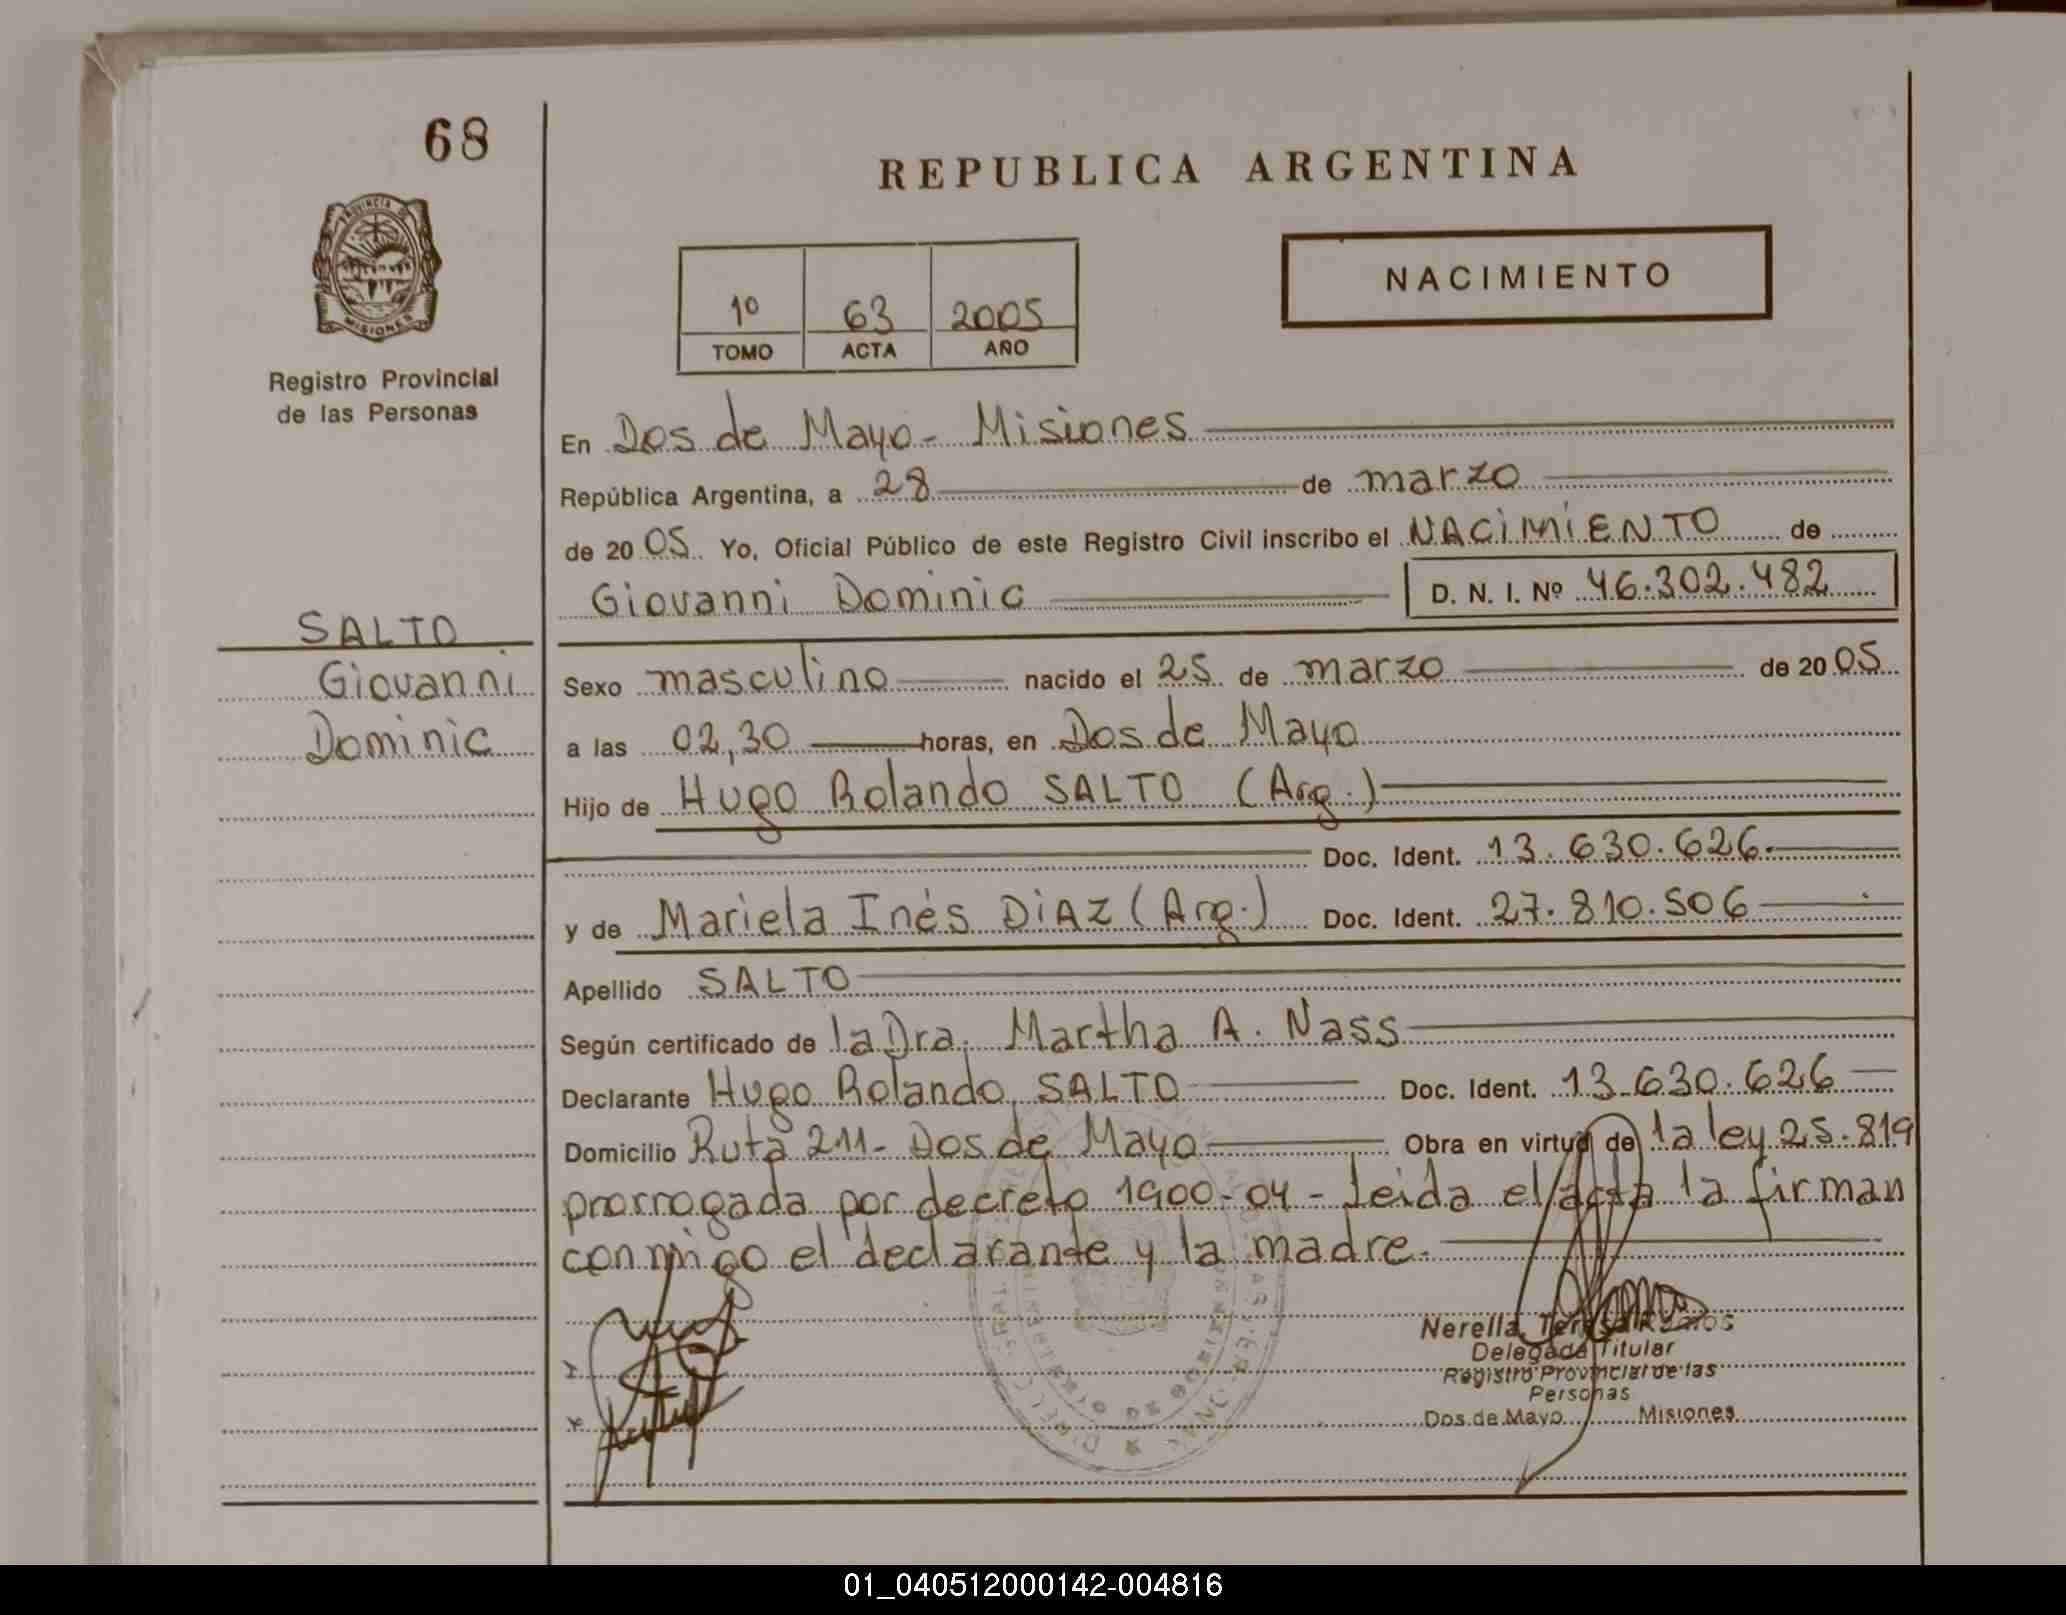 68
REPUBLICA ARGENTINA
PROVINCIA DE
MISIONES
Registro Provincial
de las Personas
1º 63 2005
TOMO ACTA AÑO
NACIMIENTO
En Dos de Mayo - Misiones
República Argentina, a 28 de marzo
de 20 05 Yo, Oficial Público de este Registro Civil inscribo el NACIMIENTO de
Giovanni Dominic D. N. I. Nº 46.302.482
SALTO
Giovanni
Dominic
Sexo masculino nacido el 25 de marzo de 20 05
a las 02,30 horas, en Dos de Mayo
Hijo de Hugo Rolando SALTO (Arg.)
Doc. Ident. 13.630.626.
y de Mariela Inés DIAZ (Arg.) Doc. Ident. 27.810.506
Apellido SALTO
Según certificado de la Dra. Martha A. Nass
Declarante Hugo Rolando SALTO Doc. Ident. 13.630.626
Domicilio Ruta 211 - Dos de Mayo Obra en virtud de la ley 25.819
prorrogada por decreto 1900-04 - Leida el acta la firman
conmigo el declarante y la madre.
Nerella Teresa Ramos
Delegada Titular
Registro Provincial de las
Personas
Dos de Mayo Misiones
01_040512000142-004816